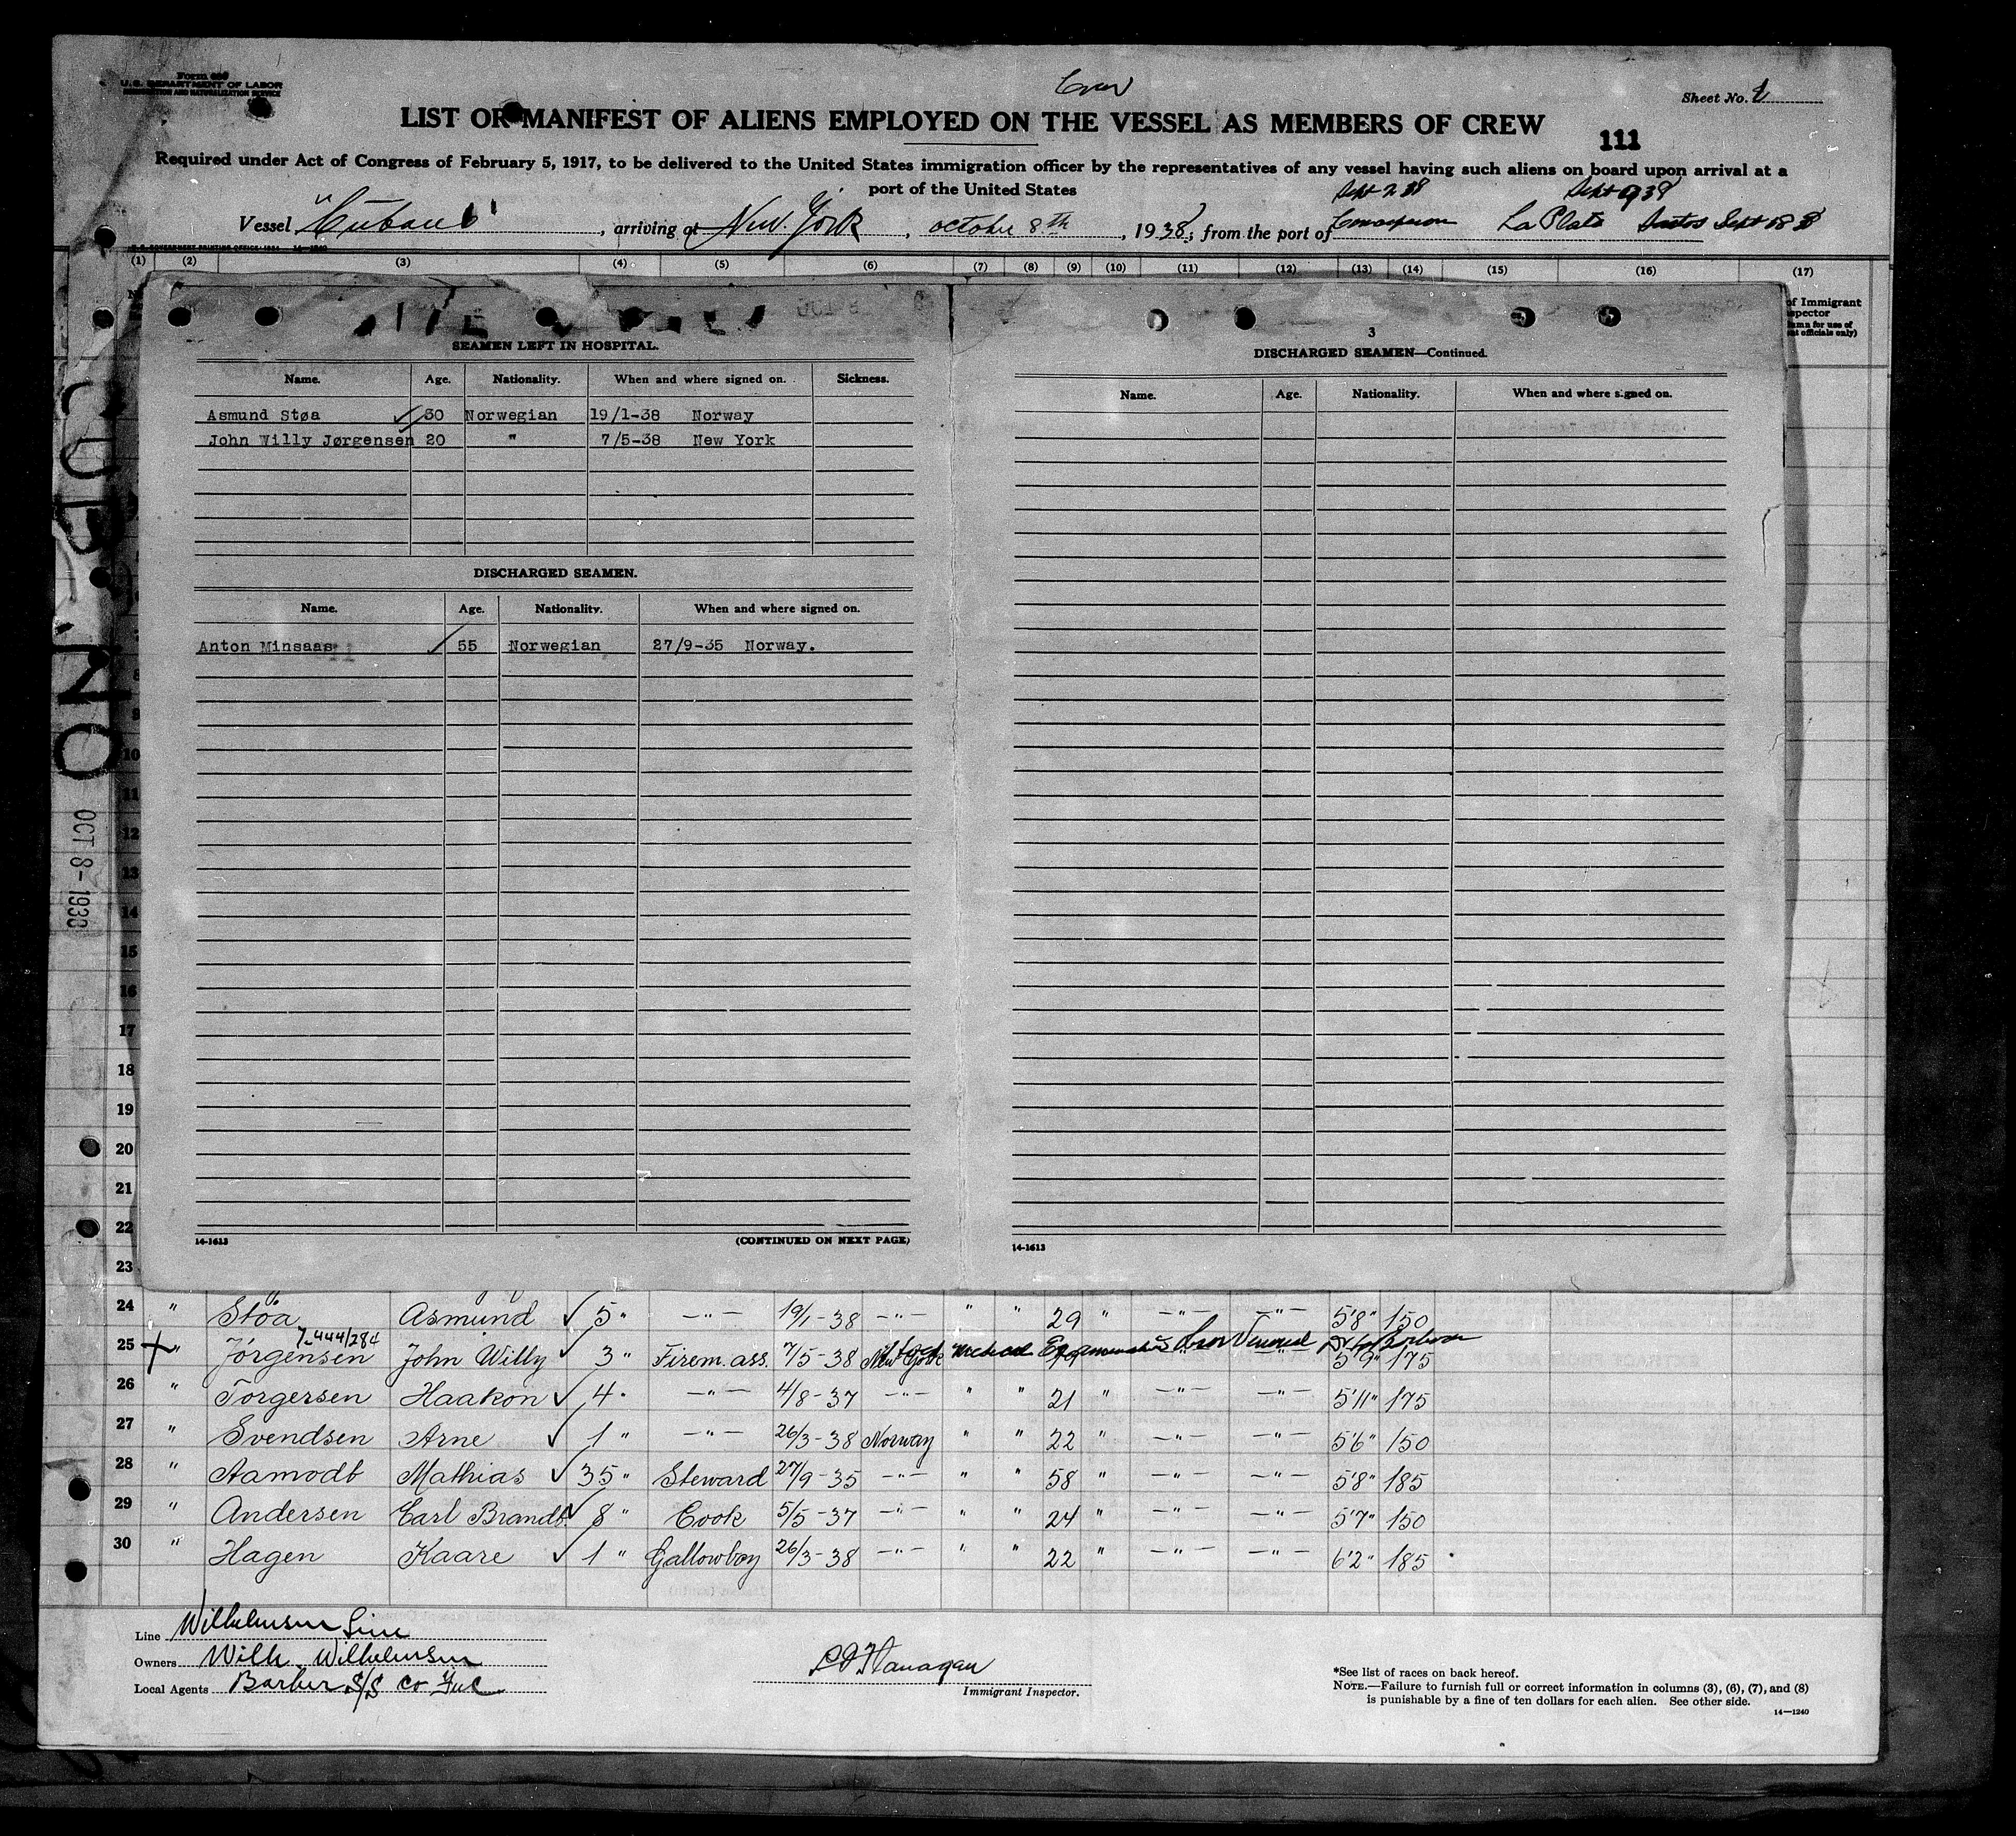 Form 689
U.S. DEPARTMENT OF LABOR
IMMIGRATION AND NATURALIZATION SERVICE
Crew
Sheet No. 1
LIST OR MANIFEST OF ALIENS EMPLOYED ON THE VESSEL AS MEMBERS OF CREW
111
Required under Act of Congress of February 5, 1917, to be delivered to the United States immigration officer by the representatives of any vessel having such aliens on board upon arrival at a
port of the United States
Sept 2 38 Sept 9 38
Vessel "Cubano", arriving at New York, october 8th, 1938, from the port of La Plata Santos Sept 18 38
U.S. GOVERNMENT PRINTING OFFICE 14-1240
(1) (2) (3) (4) (5) (6) (7) (8) (9) (10) (11) (12) (13) (14) (15) (16) (17)
of Immigrant
Inspector
SEAMEN LEFT IN HOSPITAL.
Name. Age. Nationality. When and where signed on. Sickness.
Asmund Støa 30 Norwegian 19/1-38 Norway
John Willy Jørgensen 20 " 7/5-38 New York
DISCHARGED SEAMEN.
Name. Age. Nationality. When and where signed on.
Anton Minsaas 55 Norwegian 27/9-35 Norway.
14-1613 (CONTINUED ON NEXT PAGE)
3
DISCHARGED SEAMEN—Continued.
Name. Age. Nationality. When and where signed on.
14-1613
CUBANO
OCT 8-1938
8
9
10
11
12
13
14
15
16
17
18
19
20
21
22
23
24 " Støa Asmund ✓ 5 " —"— 19/1-38 —"— " " 29 " —"— —"— 5'8" 150
7-444/284
25 " Jørgensen John Willy ✓ 3 " Firem. ass. 7/5-38 New York medical 5'9" 175
26 " Torgersen Haakon ✓ 4 " —"— 4/8-37 —"— " " 21 " —"— —"— 5'11" 175
27 " Svendsen Arne ✓ 1 " —"— 26/3-38 Norway " " 22 " —"— —"— 5'6" 150
28 " Aamodt Mathias ✓ 35 " Steward 27/9-35 —"— " " 58 " —"— —"— 5'8" 185
29 " Andersen Carl Brandt ✓ 8 " Cook 5/5-37 —"— " " 24 " —"— —"— 5'7" 150
30 " Hagen Kaare ✓ 1 " Gallowboy 26/3-38 —"— " " 22 " —"— —"— 6'2" 185
Line Wilhelmsen Line
Owners Wilh. Wilhelmsen
Local Agents Barber S/S Co Inc
Flanagan
Immigrant Inspector.
*See list of races on back hereof.
NOTE.—Failure to furnish full or correct information in columns (3), (6), (7), and (8)
is punishable by a fine of ten dollars for each alien. See other side.
14—1240